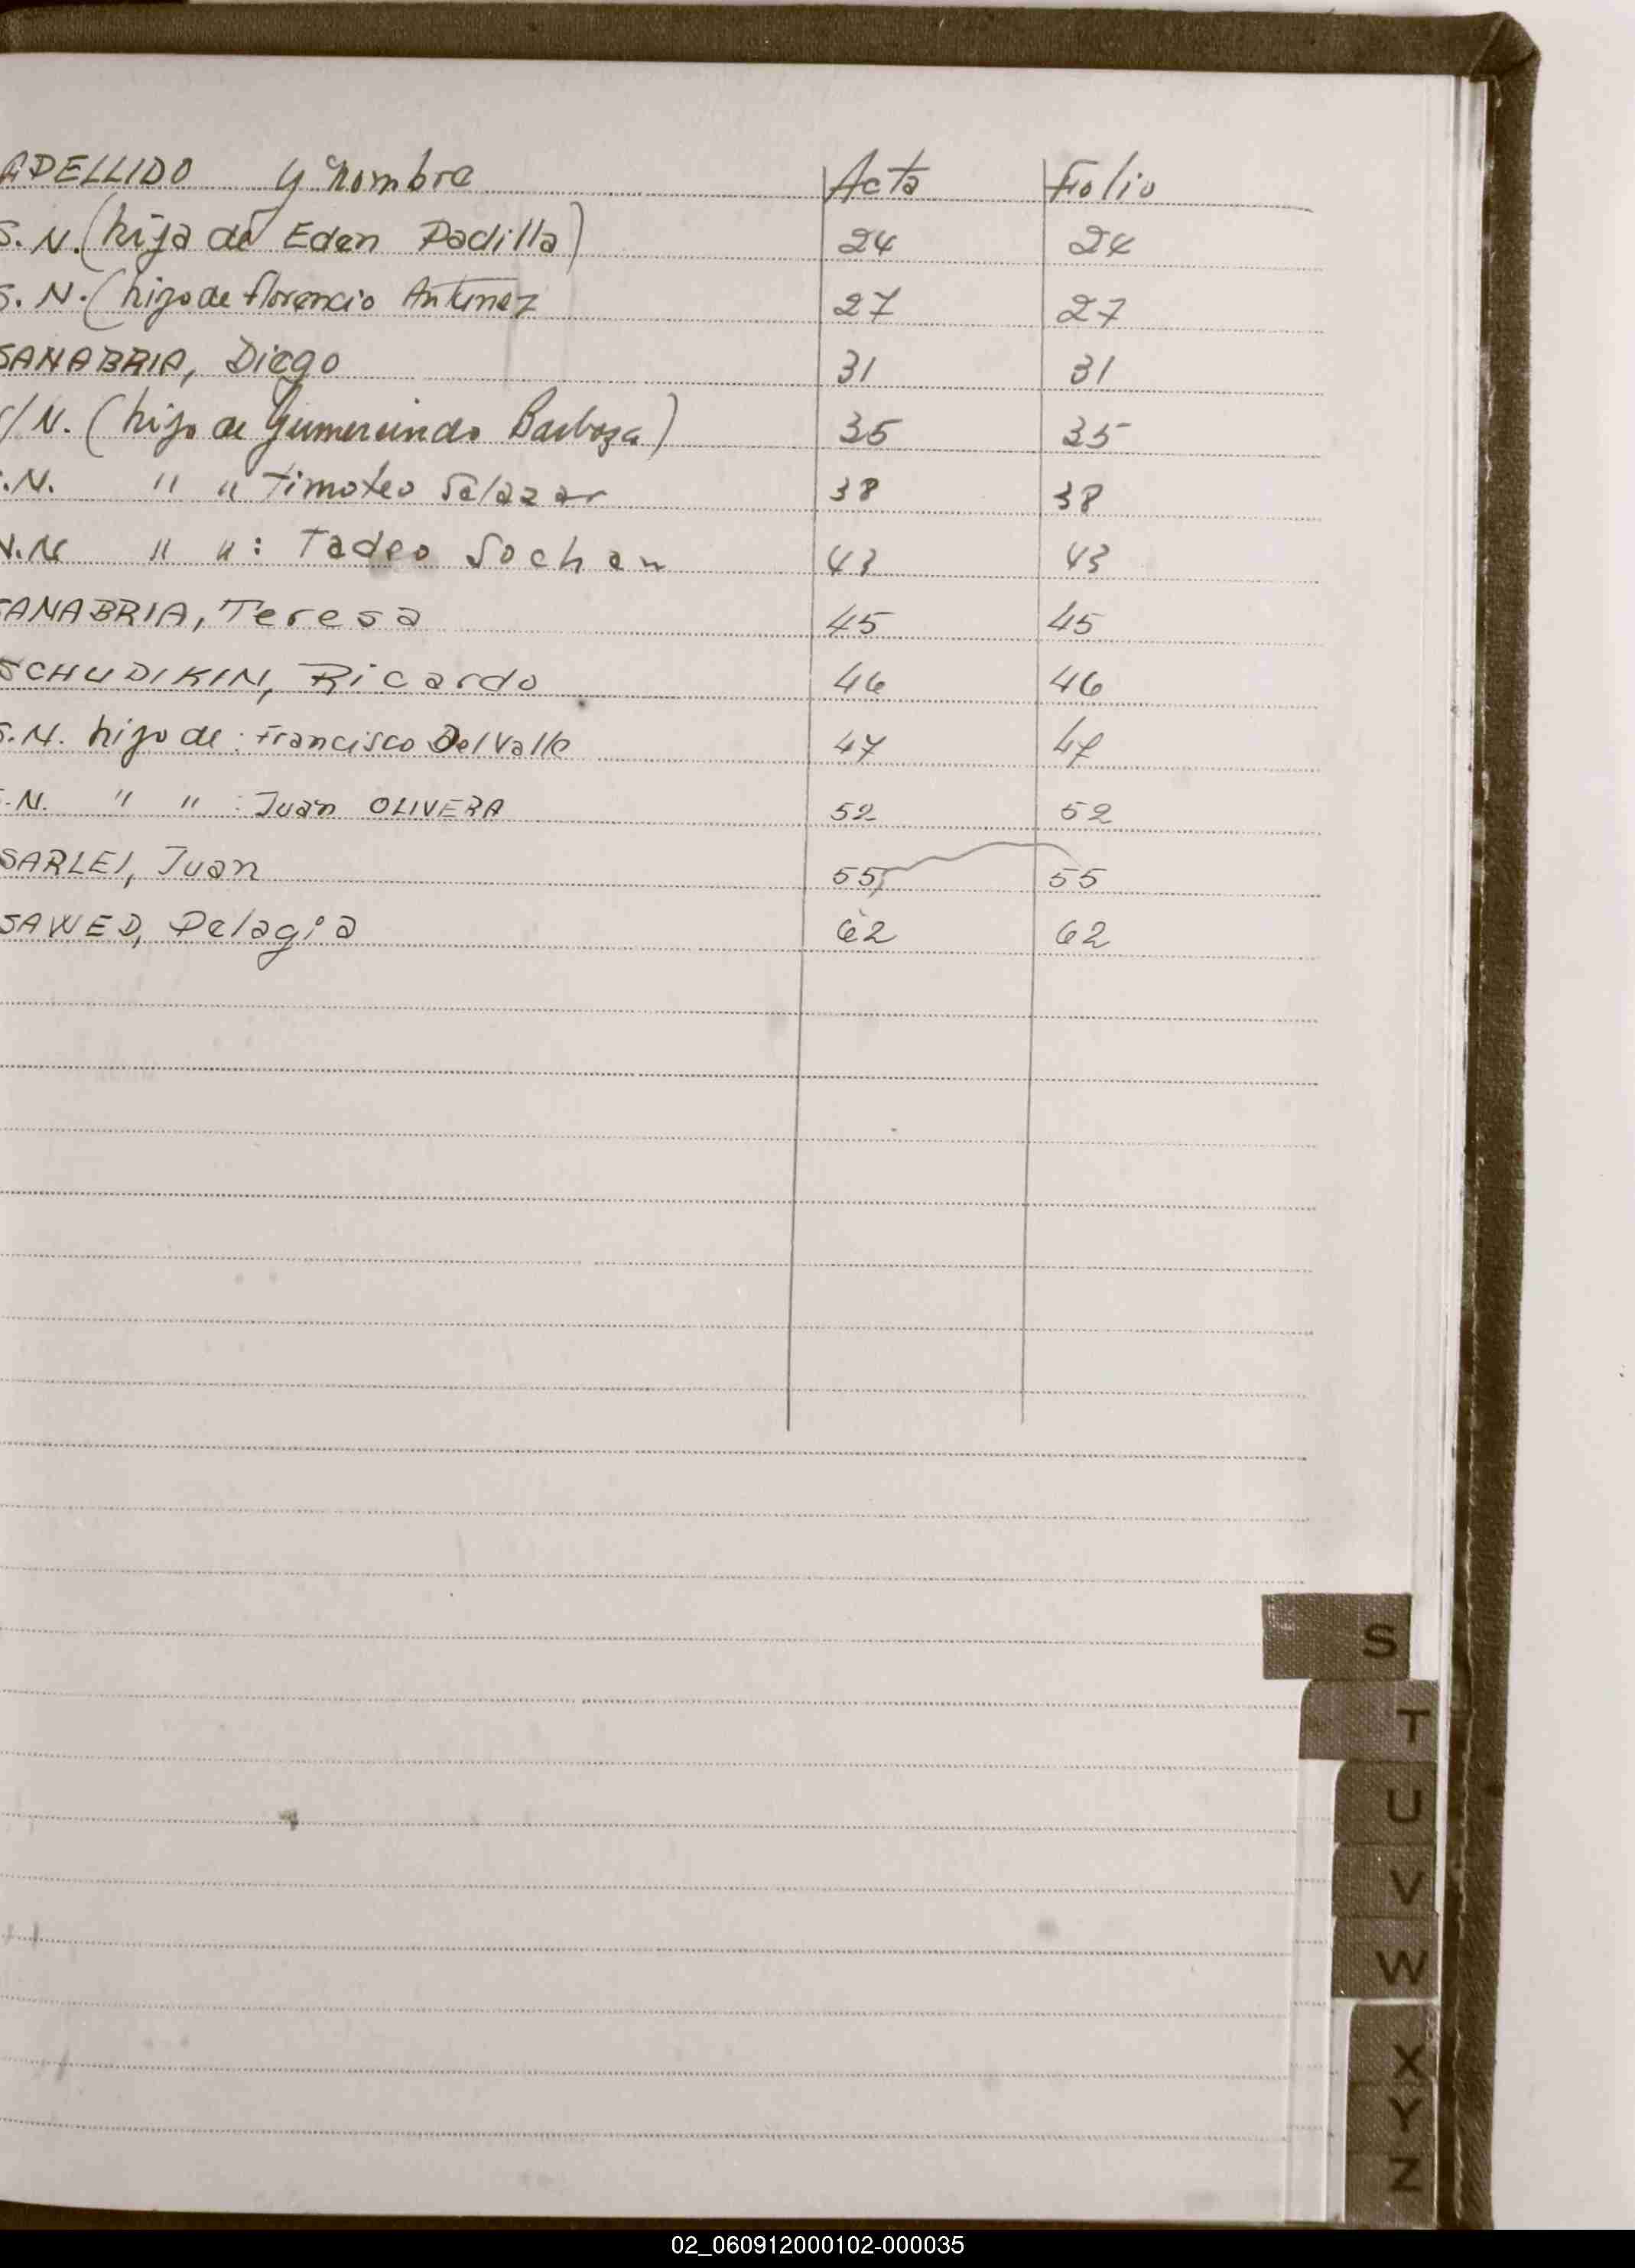 APELLIDO y nombre Acta Folio
S.N. (hija de Eden Padilla) 24 24
S.N. (hijo de florencio Antunez 27 27
SANABRIA, Diego 31 31
S/N. (hijo de Gumersindo Barboza) 35 35
S.N. " " Timoteo Salazar 38 38
N.N " " : Tadeo Sochan 43 43
SANABRIA, Teresa 45 45
SCHUDIKIN, Ricardo 46 46
S.N. hijo de : Francisco Del Valle 47 47
S.N. " " : Juan OLIVERA 52 52
SARLEI, Juan 55 55
SAWED, Pelagia 62 62
S
T
U
V
W
X
Y
Z
02_060912000102-000035